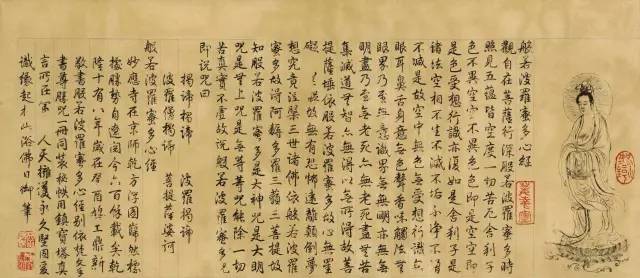 般若波羅蜜多心經
觀自在菩薩行深般若波羅蜜多時
照見五蘊皆空度一切苦厄舍利子
色不異空空不異色色即是空空即
是色受想行識亦復如是舍利子是
諸法空相不生不滅不垢不淨不增
不減是故空中無色無受想行識無
眼耳鼻舌身意無色聲香味觸法無
眼界乃至無意識界無無明亦無無
明盡乃至無老死亦無老死盡無苦
集滅道無智亦無得以無所得故菩
提薩埵依般若波羅蜜多故心無罣
礙無罣礙故無有恐怖遠離顛倒夢
想究竟涅槃三世諸佛依般若波羅
蜜多故得阿耨多羅三藐三菩提故
知般若波羅蜜多是大神咒是大明
咒是無上咒是無等等咒能除一切
苦真實不虛故說般若波羅蜜多咒
即說咒曰
揭諦揭諦 波羅揭諦
波羅僧揭諦 菩提薩婆訶
般若波羅蜜多心經
妙應寺在京師乾方浮圖巋然
勝勢自遼閱今六百餘載矣乾
隆十有八年歲在癸酉工鼎新
敬書般若波羅蜜多心經別依梵文
書尊勝咒一冊同裝秘帙用鎮寶塔真
言所在 人天擁護永久堅固爰
識緣起 浴佛日御筆